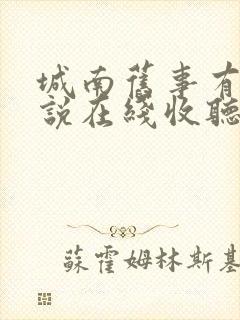 城南舊事有
說在綫收聽
蘇霍姆林斯基